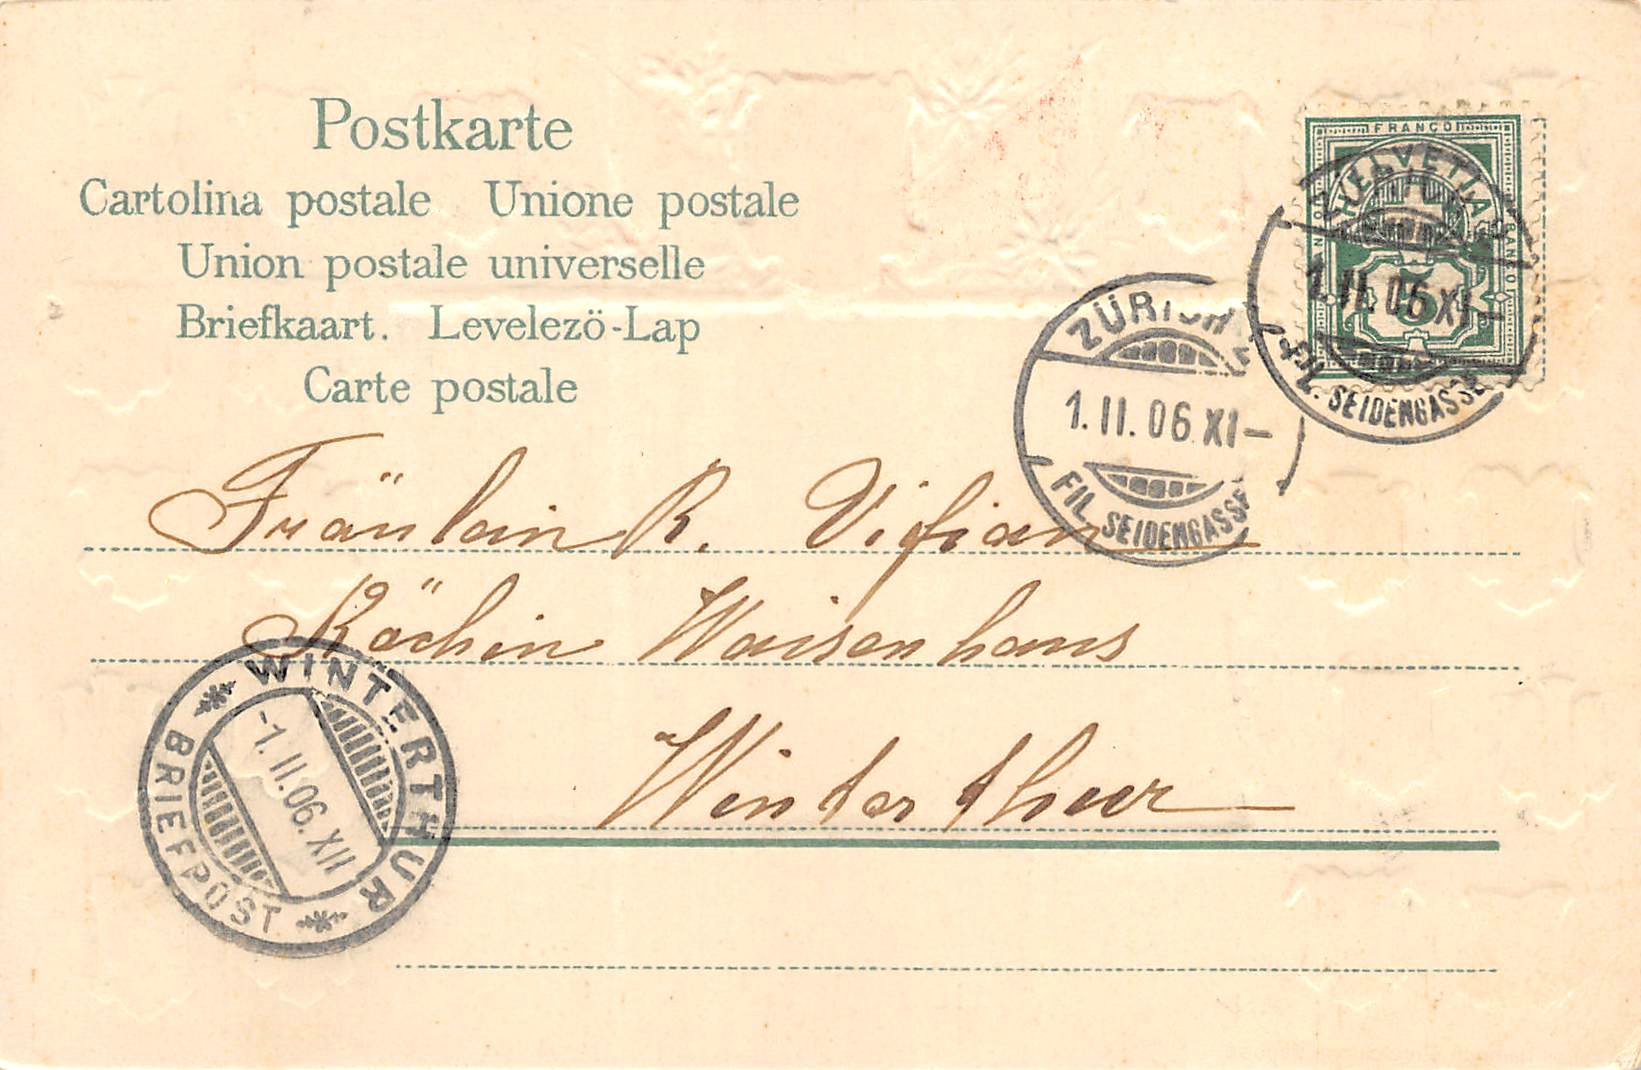 Postkarte
Cartolina postale Unione postale
Union postale universelle
Briefkaart. Levelezö-Lap
Carte postale
FRANCO
HELVETIA
5
1.II.06 XI–
FIL. SEIDENGASSE
ZÜRICH
1.II.06 XI–
FIL. SEIDENGASSE
Fräulein R. Vifian
Köchin Waisenhaus
Winterthur
WINTERTHUR
-1.II.06.XII
BRIEFPOST